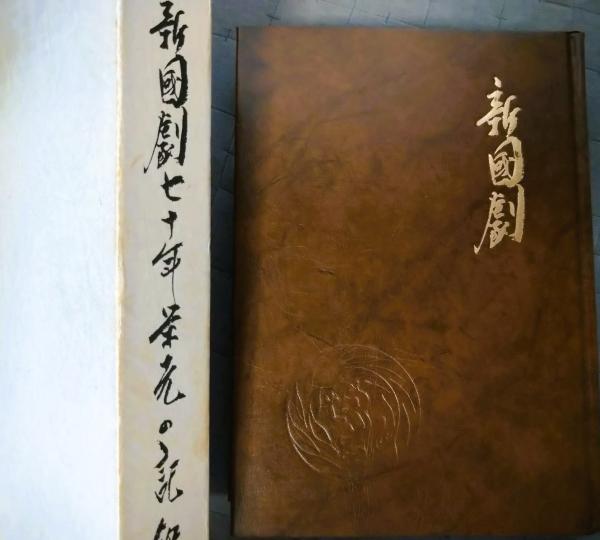 新國劇七十年栄光の記
新國劇